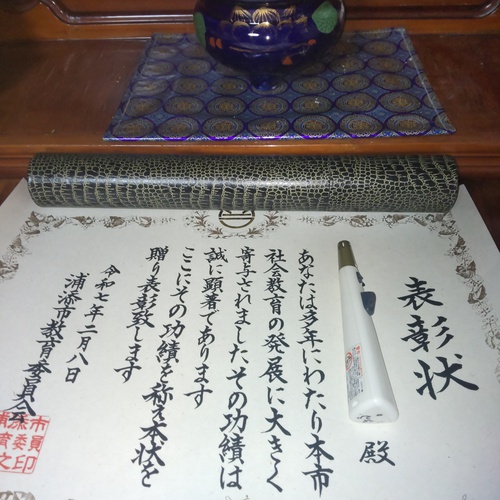 表彰状
殿
あなたは多年にわたり本市
社会教育の発展に大きく
寄与されましたその功績は
誠に顕著であります
ここにその功績を称え本状を
贈り表彰致します
令和七年二月八日
浦添市教育委員会